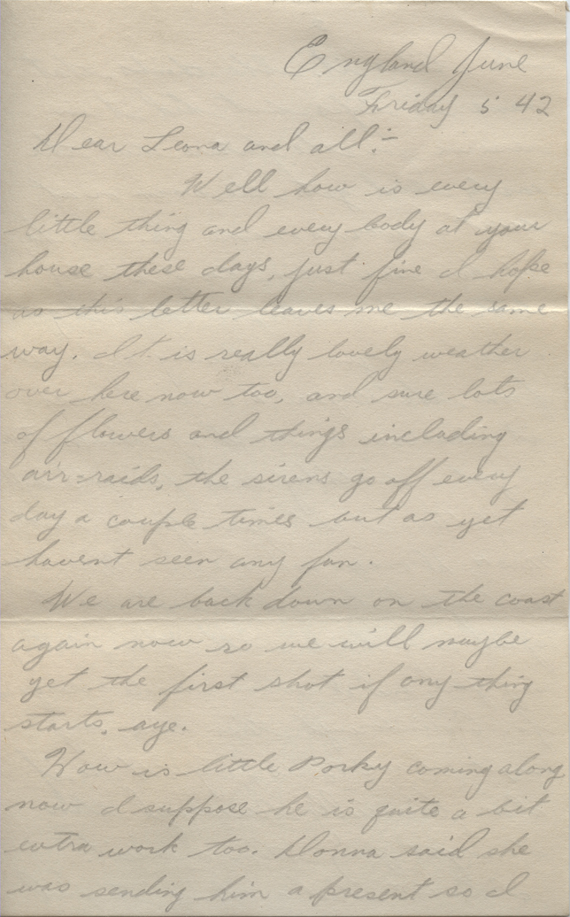 England June
Friday 5 42
Dear Leona and all:-
Well how is every
little thing and every body at your
house these days, just fine I hope
as this letter leaves me the same
way. It is really lovely weather
over here now too, and sure lots
of flowers and things including
air-raids, the sirens go off every
day a couple times but as yet
havent seen any fun.
We are back down on the coast
again now so we will maybe
get the first shot if any thing
starts, aye.
How is little Porky coming along
now I suppose he is quite a bit
extra work too. Donna said she
was sending him a present so I